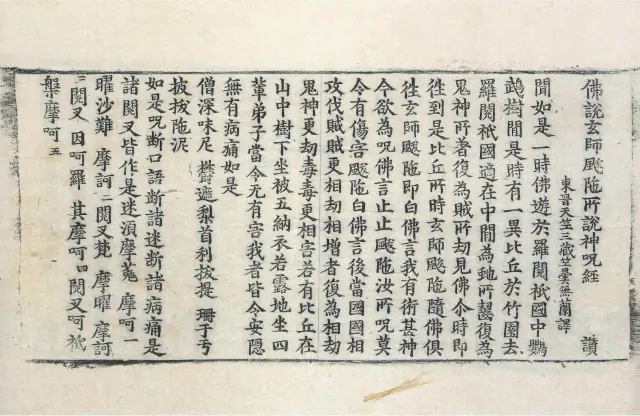 佛說玄師颰陁所說神呪經 讚
東晉天竺三藏竺曇無蘭譯
聞如是一時佛遊於羅閱祇國中鸚
鵡樹間是時有一異比丘於竹園去
羅閱祇國適在中間為虵所齧復為
鬼神所著復為賊所刼見佛尒時即
徃到是比丘所時玄師颰陁隨佛俱
徃玄師颰陁即白佛言我有術甚神
今欲為呪佛言止止颰陁汝所呪莫
令有傷害颰陁白佛言後當國國相
攻伐賊賊更相刼相增者復為相刼
鬼神更刼毒毒更相害若有比丘在
山中樹下坐被五納衣若露地坐四
輩弟子當令无有害我者皆令安隱
無有病痛如是
僧深味尼 遮梨首利拔提 珊子丂
披拔陁泥
如是呪断口語断諸迷断諸病痛是
諸閱叉皆作是迷湏摩 摩呵一
曜沙難 摩訶二閱叉梵 摩曜 摩訶
三閱叉 因呵羅 其摩呵四閱叉呵祇
槃摩呵五